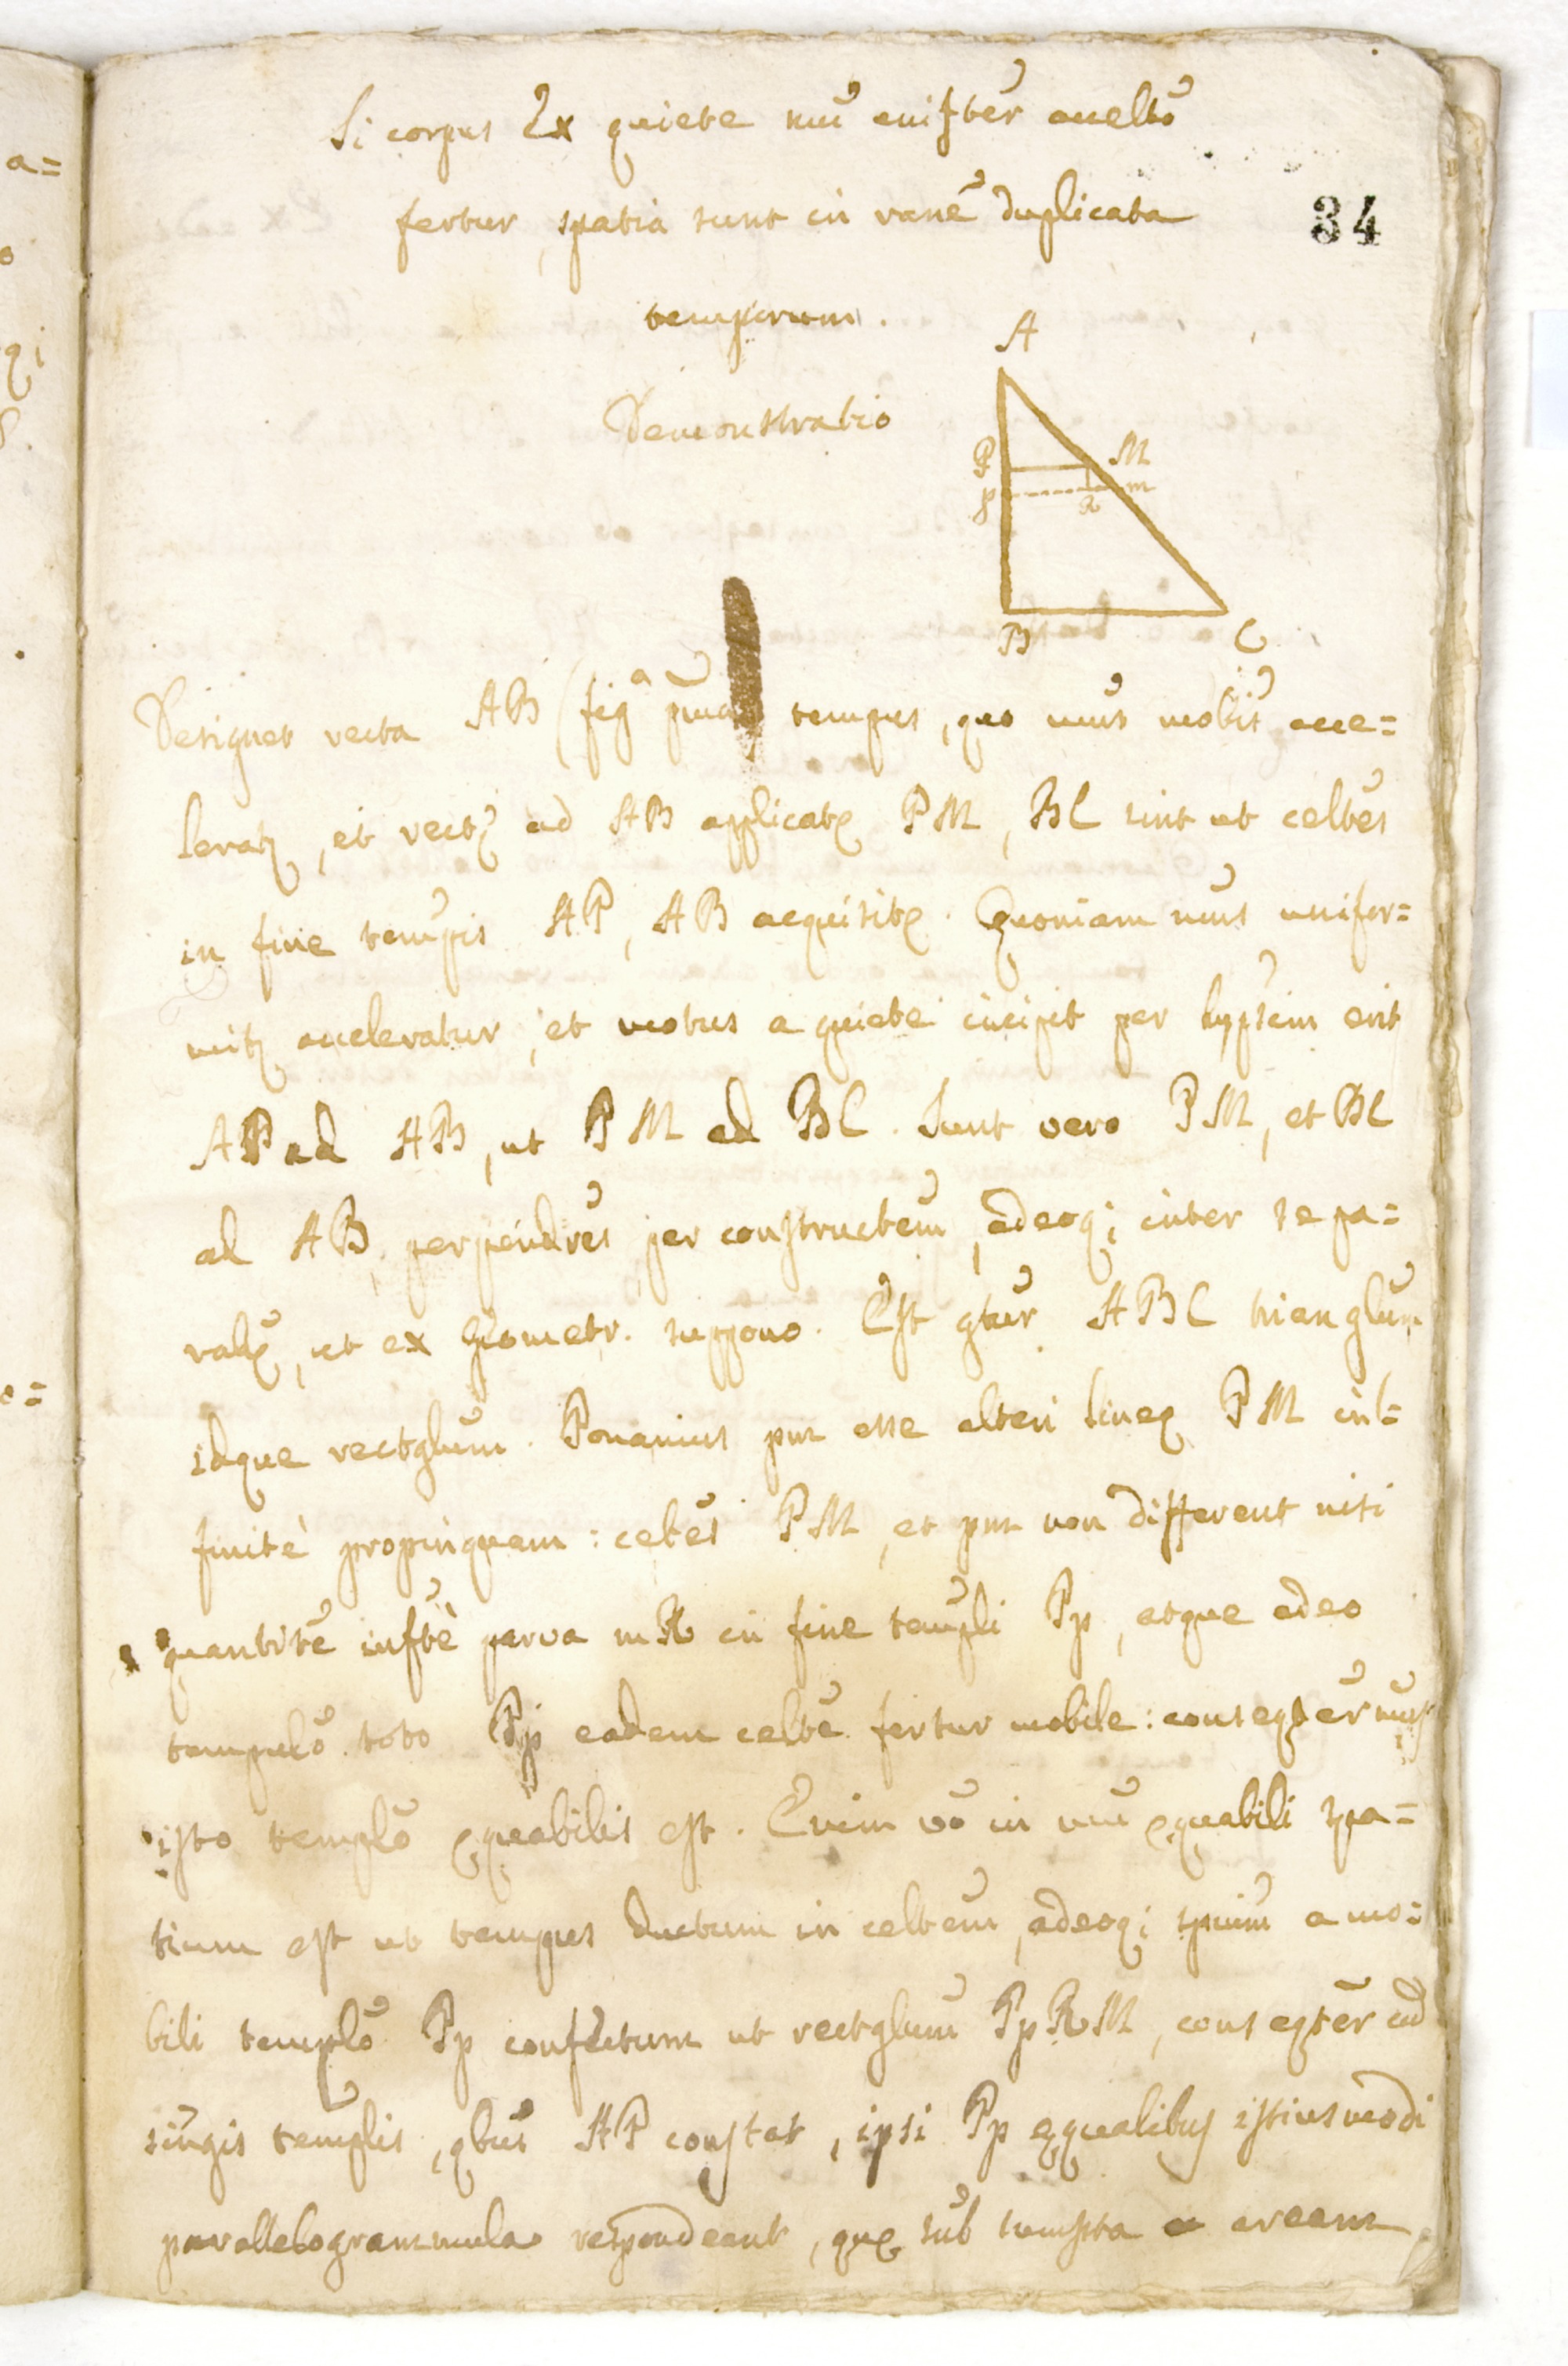 a=
o
qꝫ
Si corpus Ex quiete mũ uniftēr aceltõ
fertur, spatia sunt in rañe duplicata
34
temporum.
Demonstratio
A
P
M
p
R
m
B
C
Designet recta AB (figª p̃ma tempus, quo mũs mobis̃ acce=
lerat̃, et rectę ad AB applicatę PM, BC sint ut celtẽs
in fine temp̃is AP, AB acquisitę. Quoniam mũs unifor=
mit̃ acceleratur, et motus a quiete incipit per hyp̃sim erit
AP ad AB, ut PM ad BC. Sunt vero PM, et BC
ad AB perpend̃res per constructem̃, adeoqꝫ inter se pa=
ralę̃, ut ex Geometr. suppono. Est gtũr ABC trianglũm
idque rectglũm. Ponamus pm esse alteri lineę PM in=
finitè propinquam: celtẽs PM, et pm non different nisi
quantitẽ inftẽ̀ parva mR in fine temp̃li Pp, atque adeo
tempulõ toto Pp eadem celtẽ fertur mobile: conseqtẽr mũs
isto templõ ęquabilis est. Enim võ in mũ ęquabili spa=
tium est ut tempus ductum in celtem̃, adeoqꝫ spium̃ a mo=
bili templõ Pp confectum ut rectglum̃ PpRM, conseqtẽr cũ
sing̃is temp̃lis, qbũs AP constat, ipsi Pp ęqualibus istiusmodi
parallelogrammula respondeant, quę sub sumpta a aream